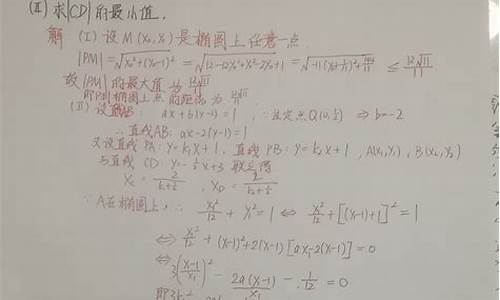 (II) 求|CD|的最小值.
解 (I) 设 M(x₀,y₀) 是椭圆上任意一点
|PM|=√(x₀²+(y₀-1)²) = √(12-12y₀²+y₀²-2y₀+1) = ≤ 12√11/11
故|PM|的最大值为 12√11/11
即P到椭圆上点的距离为 12√11/11
(II) 设直线AB: ax+b(y-1)=1, ∵过定点Q(0,1/2) ⇒ b=-2
∴直线AB: ax-2(y-1)=1
又设直线PA: y=k₁x+1, 直线PB: y=k₂x+1, A(x₁,y₁), B(x₂,y₂)
与直线CD: y=-1/2x+3 联立得
x_C = 2/(k₁+1/2), x_D = 2/(k₂+1/2)
∵A在椭圆上, ∴ x₁²/12 + y₁²=1 ⇔ x₁²/12 + [(y₁-1)+1]²=1
⇔ x₁²/12 + (y₁-1)²+2(y₁-1)[ax₁-2(y₁-1)]=0
⇔ 3((y₁-1)/x₁)² - 2a(y₁-1)/x₁ - 1/12 = 0